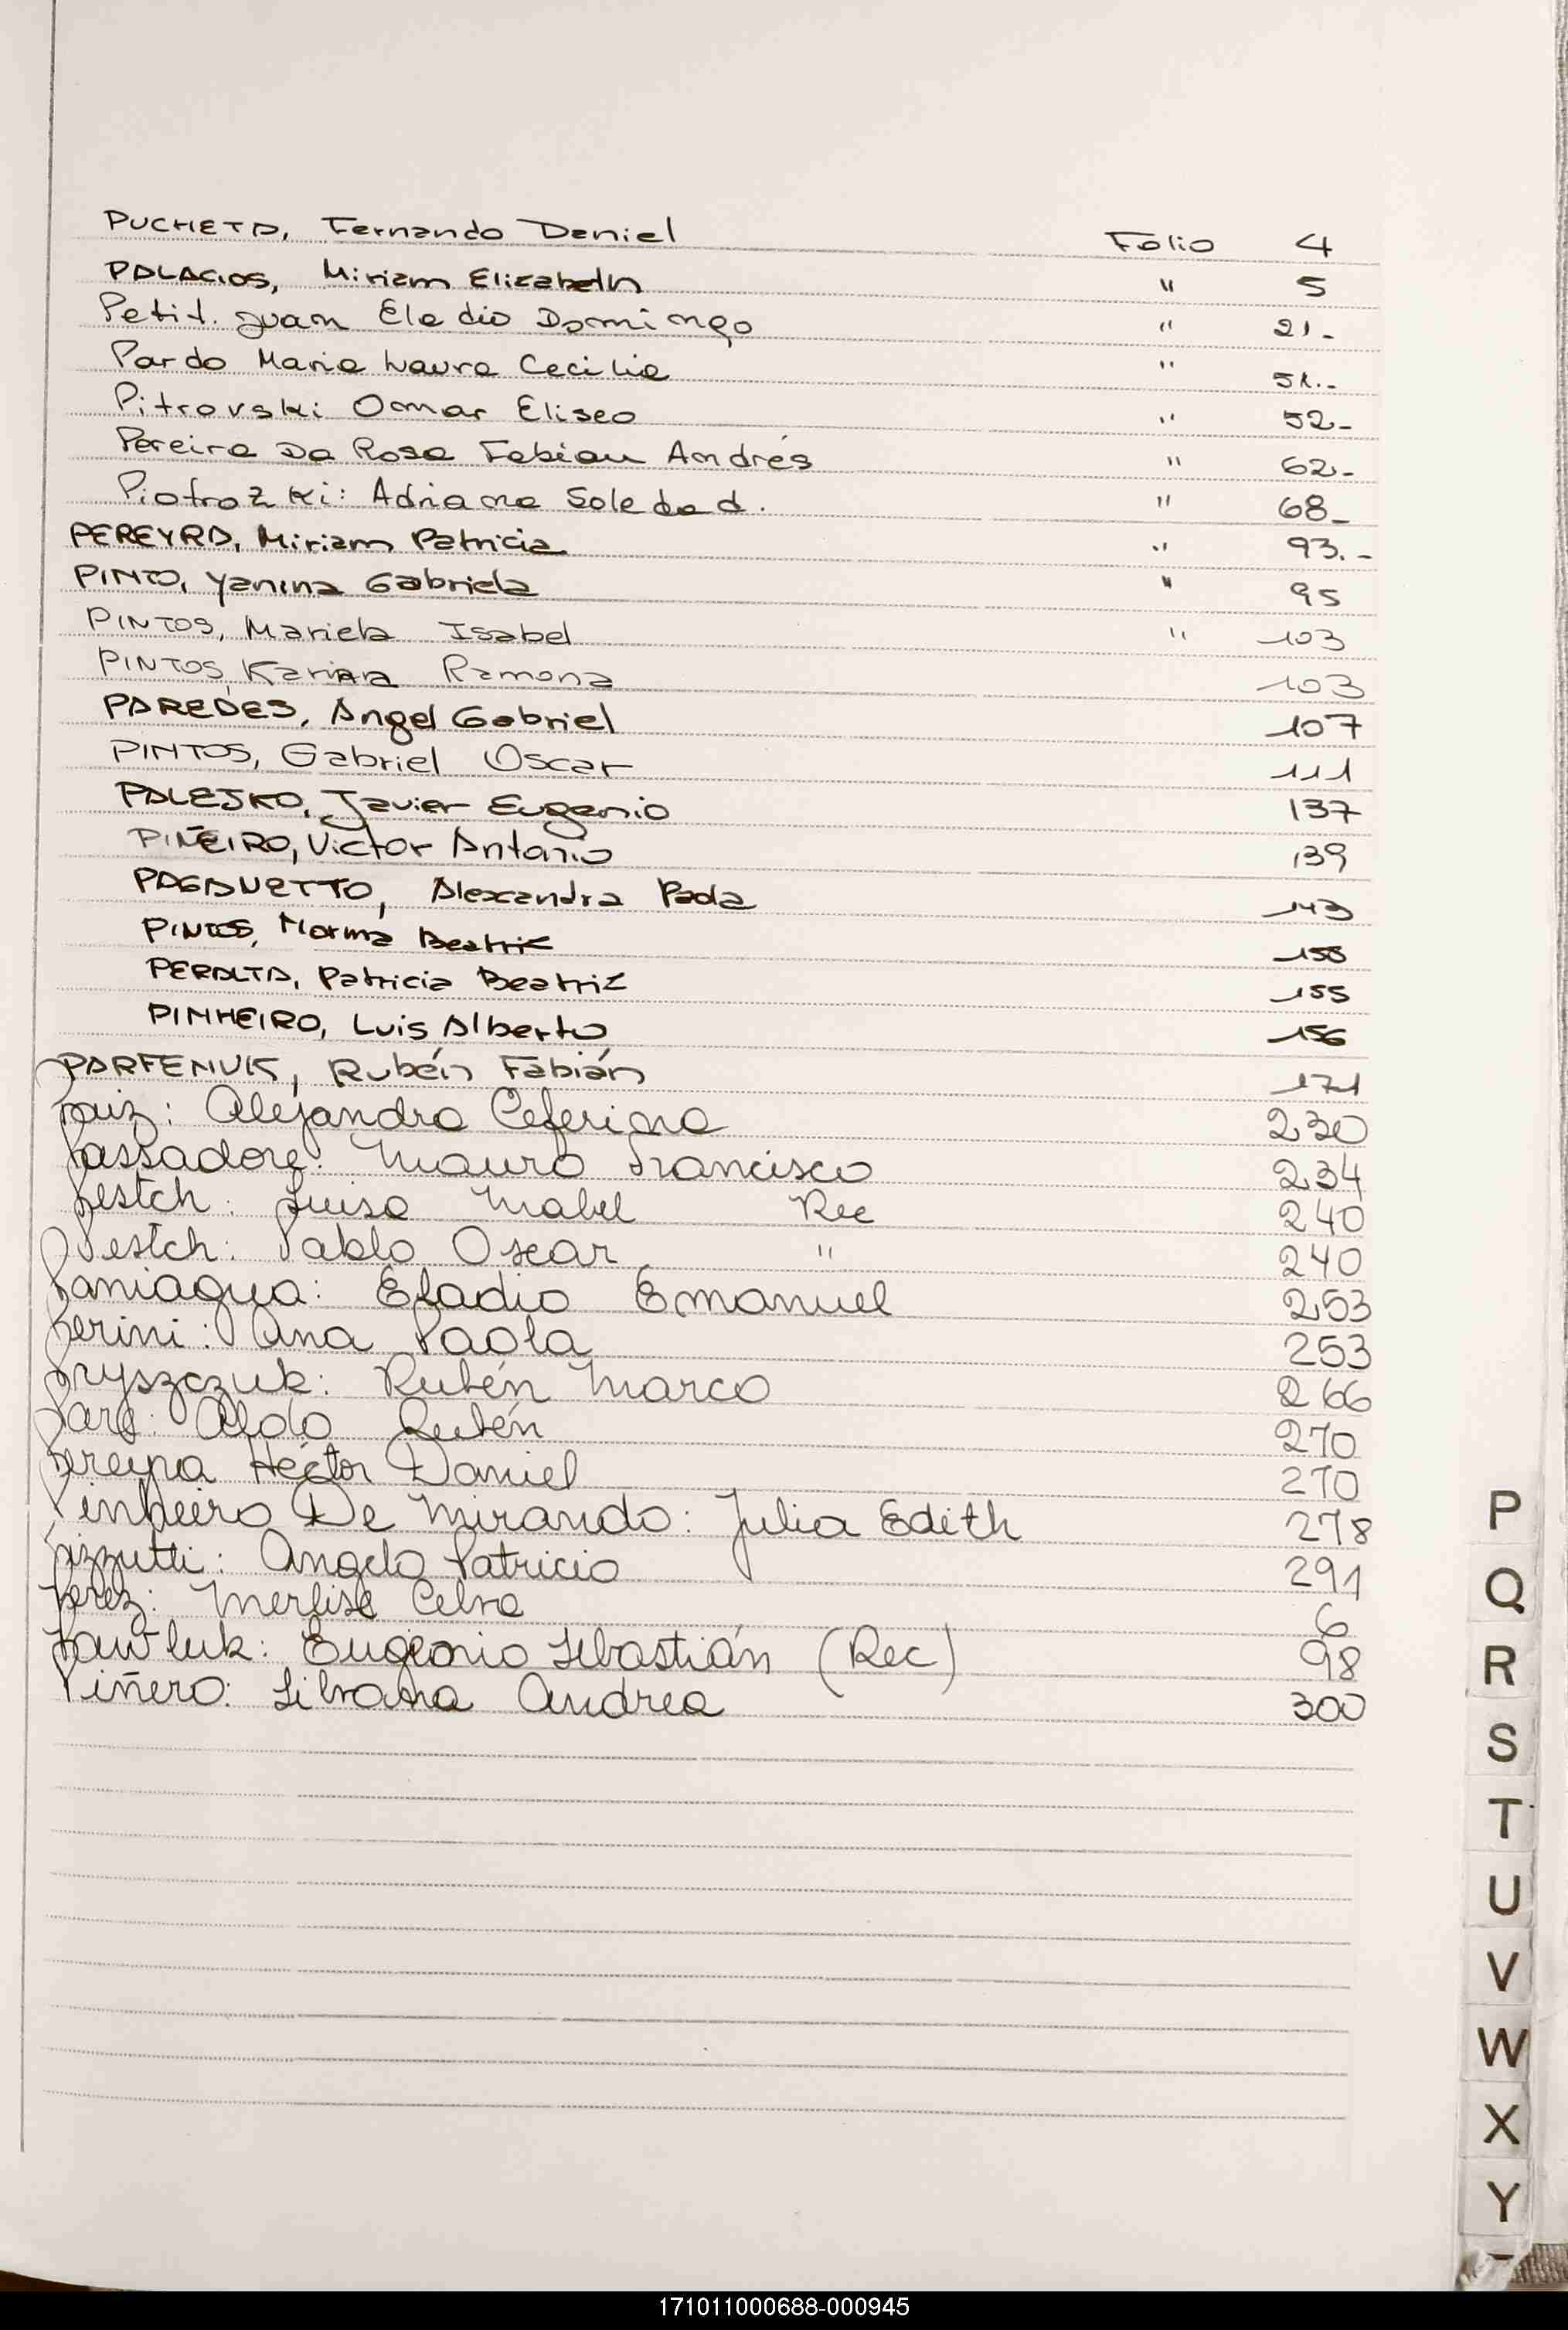 PUCHETA, Fernando Daniel Folio 4
PALACIOS, Miriam Elizabeth " 5
Petit. Juan Eladio Domingo " 21.-
Pardo Maria Laura Cecilia " 51.-
Pitrovski Omar Eliseo " 52.-
Pereira Da Rosa Fabian Andrés " 62.-
Piotrozki: Adriana Soledad. " 68_
PEREYRA, Miriam Patricia " 93.-
PINTO, Yanina Gabriela " 95
PINTOS, Mariela Isabel " 103
PINTOS, Karina Ramona 103
PAREDES, Angel Gabriel 107
PINTOS, Gabriel Oscar 111
PALEJKO, Javier Eugenio 137
PIÑEIRO, Victor Antonio 139
PAGANETTO, Alexandra Paola 143
PINTOS, Norma Beatriz 155
PERALTA, Patricia Beatriz 155
PINHEIRO, Luis Alberto 156
PARFENIUK, Rubén Fabián 171
Paiz: Alejandra Ceferina 230
Passadore: Mauro Francisco 234
Pestch: Luisa Mabel Rec 240
Pestch: Pablo Oscar " 240
Paniagua: Eladio Emanuel 253
Perini: Ana Paola 253
Pryszczuk: Rubén Marco 266
Aldo Rubén 270
Pereyra Héctor Daniel 270
Pinheiro De Mirando: Julia Edith 278
Pizzutti: Angelo Patricio 291
Perez: Merlise Celva 6
Pawluk: Eugenio Sebastián (Rec) 98
Piñero: Silvana Andrea 300
P
Q
R
S
T
U
V
W
X
Y
171011000688-000945